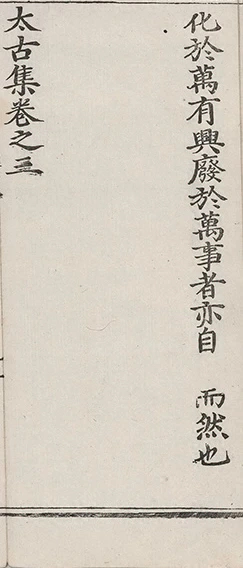 化於萬有興廢於萬事者亦自　而然也
太古集卷之三